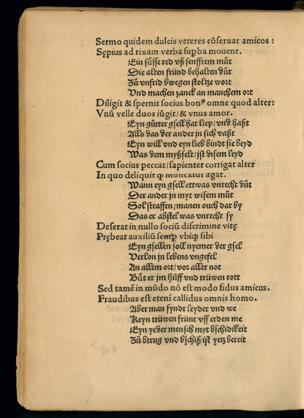 Sermo quidem dulcis veteres cõseruat amicos:
Sępius ad rixam verba supba mouent.
Ein süsse red vß senfftem můt
Die alten fründ behalten důt
Zů vnfrid bwegen stoltze wort
Vnd machen zanck an manchem ort
Diligit & spernit socius bonꝰ omne quod alter:
Vnũ velle duos iũgit/& vnus amor.
Eyn gůtter gsell hat liep/ vnd haßt
Alls das der ander in sich vaßt
Eyn will vnd eyn lieb bindt sie beyd
Was dem myßfelt/ist disem leyd
Cum socius peccat/sapienter corrigat alter
In quo deliquit ꝙ moneatur agat.
Wann eyn gsell ettwas vnrecht důt
Der ander in myt wisem můt
Sol straffen/manen ouch dar by
Das er abstel was vnrecht sy
Deserat in nullo sociũ discrimine vitę
Prębeat auxiliũ semꝑ vbiqꝫ sibi
Eyn gsellen soll nyemer der gsel
Verlon in lebens vngefel
An allem ort/ vor aller not
Büt er jm hülff vnd trüwen rott
Sed tamẽ in mũdo nõ est modo fidus amicus.
Fraudibus est etenĩ callidus omnis homo.
Aber man fyndt leyder vnd we
Keyn trüwen fründt vff erden me
Eyn yeder mensch myt bschidikeit
Zů betrug vnd bschiß ist yetz bereit